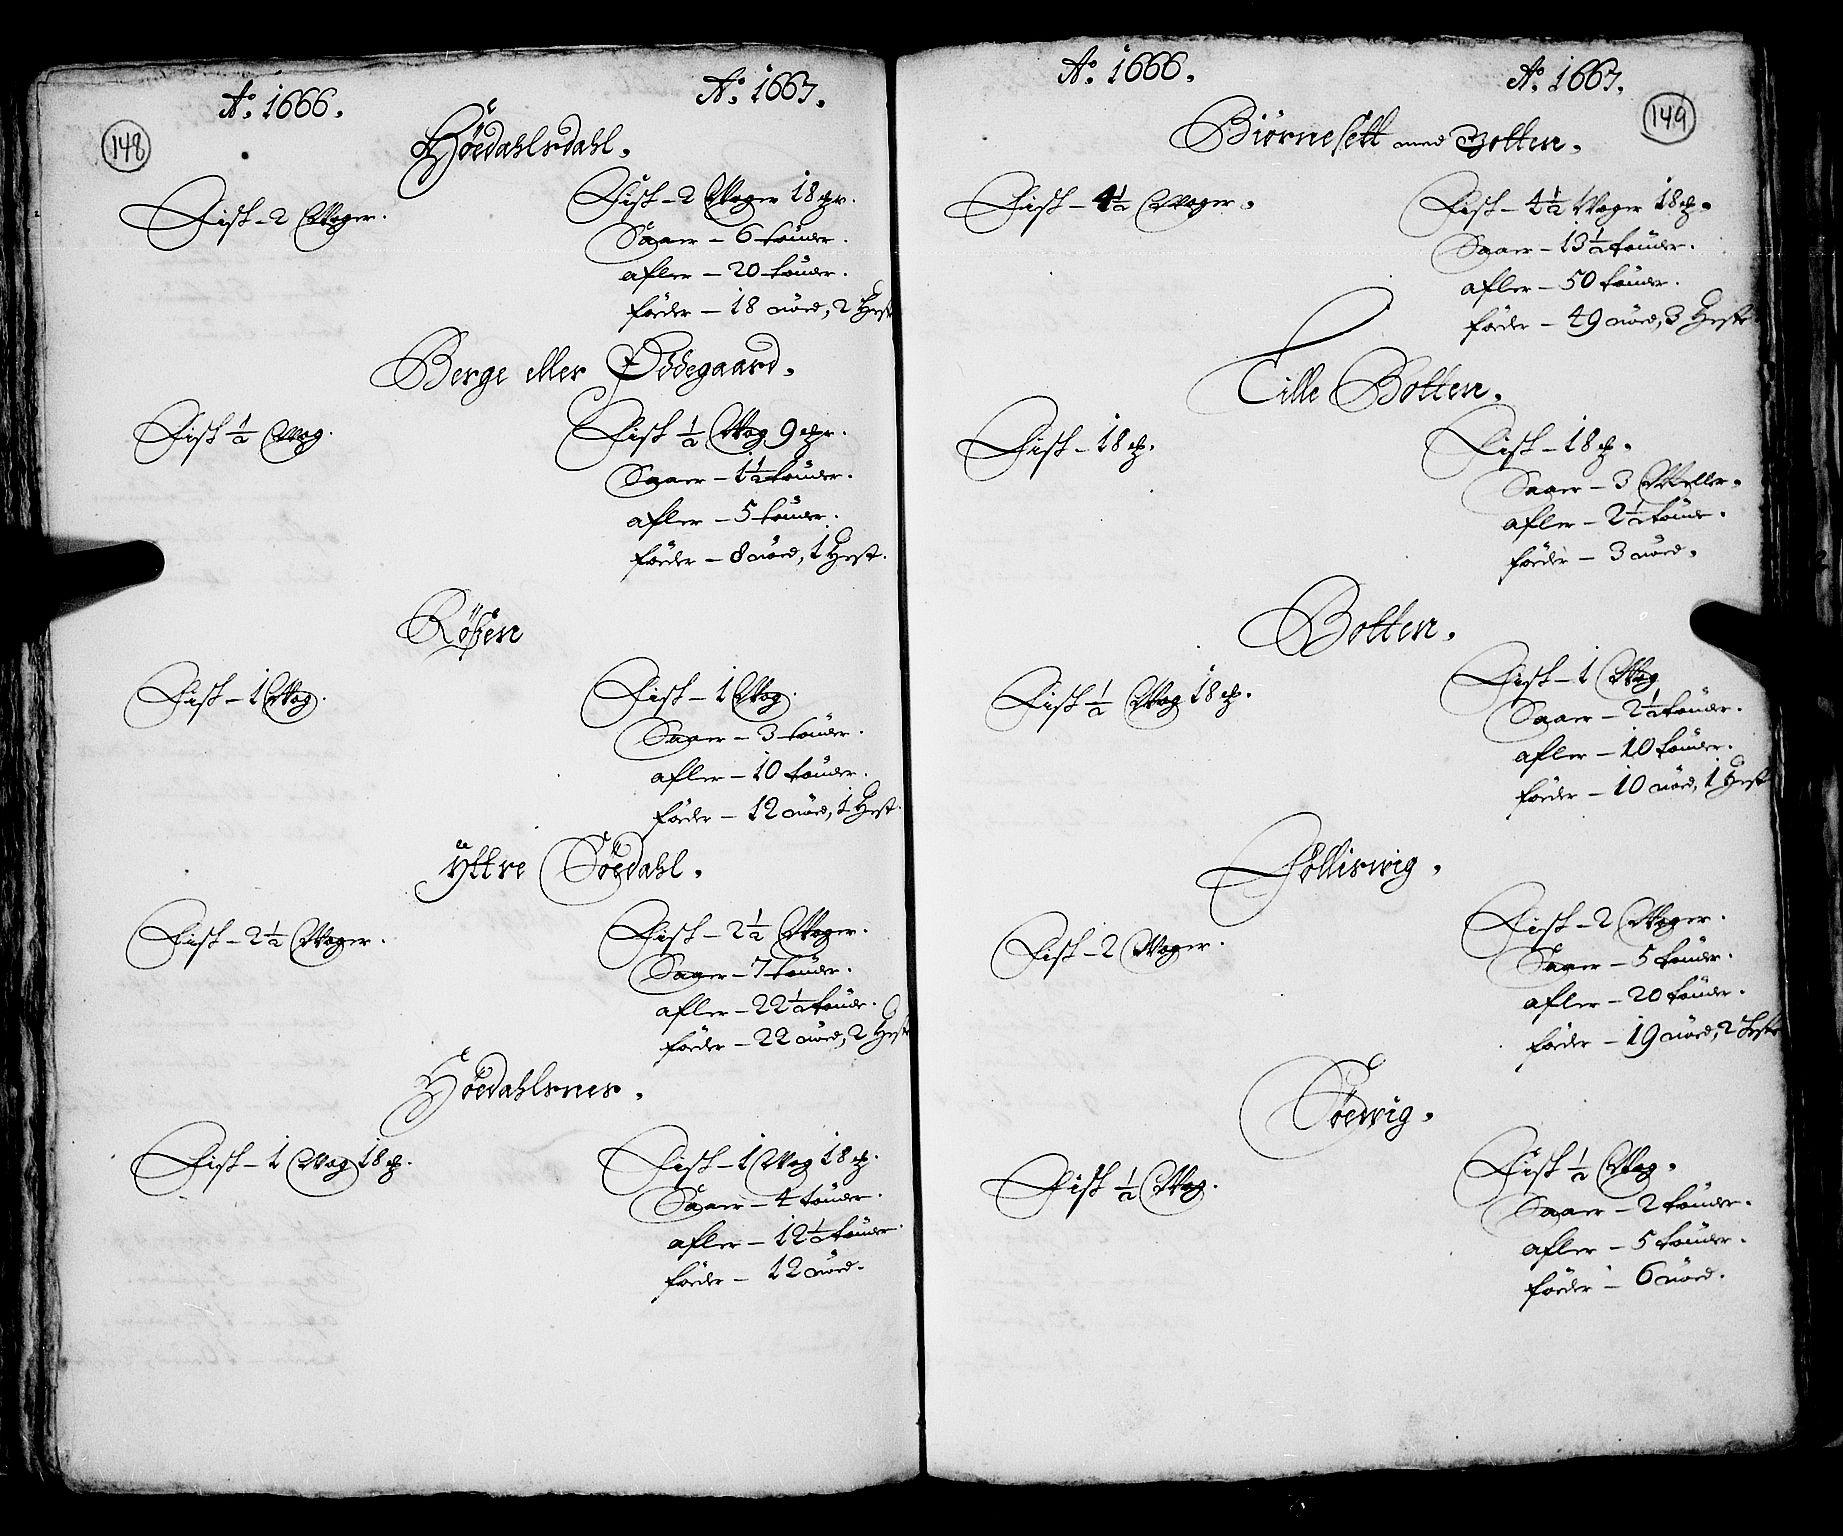 148
Aº. 1666.
Aº. 1667.
Höedahlsdahl.
Fisk - 2 Woger.
Fisk - 2 Woger 18 pr.
Saaer - 6 tönder.
afler - 20 tönder.
föeder - 18 nöed, 2 Hest
Berge eller Ødegaard.
Fisk ½ Wog.
Fisk ½ Wog 9 pr.
Saaer - 1½ tönder.
afler - 5 tönder.
föeder - 8 nöed, 1 Hest.
Fisk - 1 Wog.
Fisk - 1 Wog.
Saaer - 3 tönder.
afler - 10 tönder.
föeder - 12 nöed, 1 Hest.
Yttre Söedahl.
Fisk - 2½ Woger.
Fisk - 2½ Woger.
Saaer - 7 tönder.
afler - 22½ tönder.
föeder - 22 nöed, 2 Hest
Höedahlsnes.
Fisk - 1 Wog 18 p.
Fisk - 1 Wog 18 p.
Saaer - 4 tönder.
afler - 12½ tönder
föeder - 12 nöed.
149
Aº. 1666.
Aº. 1667.
Biörnesett med Botten.
Fisk - 4½ Woger.
Fisk - 4½ Woger 18 p.
Saaer - 13½ tönder.
afler - 50 tönder.
föeder - 49 nöed, 3 Heste
Lille Botten.
Fisk - 18 p.
Fisk - 18 p.
Saaer - 3 Meller.
afler - 2½ tönde.
föeder - 3 nöed.
Botten.
Fisk ½ Wog 18 p.
Fisk - 1 Wog
Saaer - 2½ tönder.
afler - 10 tönder.
föeder - 10 nöed, 1 Hest
Folliswig.
Fisk - 2 Woger.
Fisk - 2 Woger.
Saaer - 5 tönder.
afler - 20 tönder.
föeder - 19 nöed, 2 Heste
Söewig.
Fisk ½ Wog.
Fisk ½ Wog.
Saaer - 2 tönder.
afler - 5 tönder.
föeder - 6 nöed.